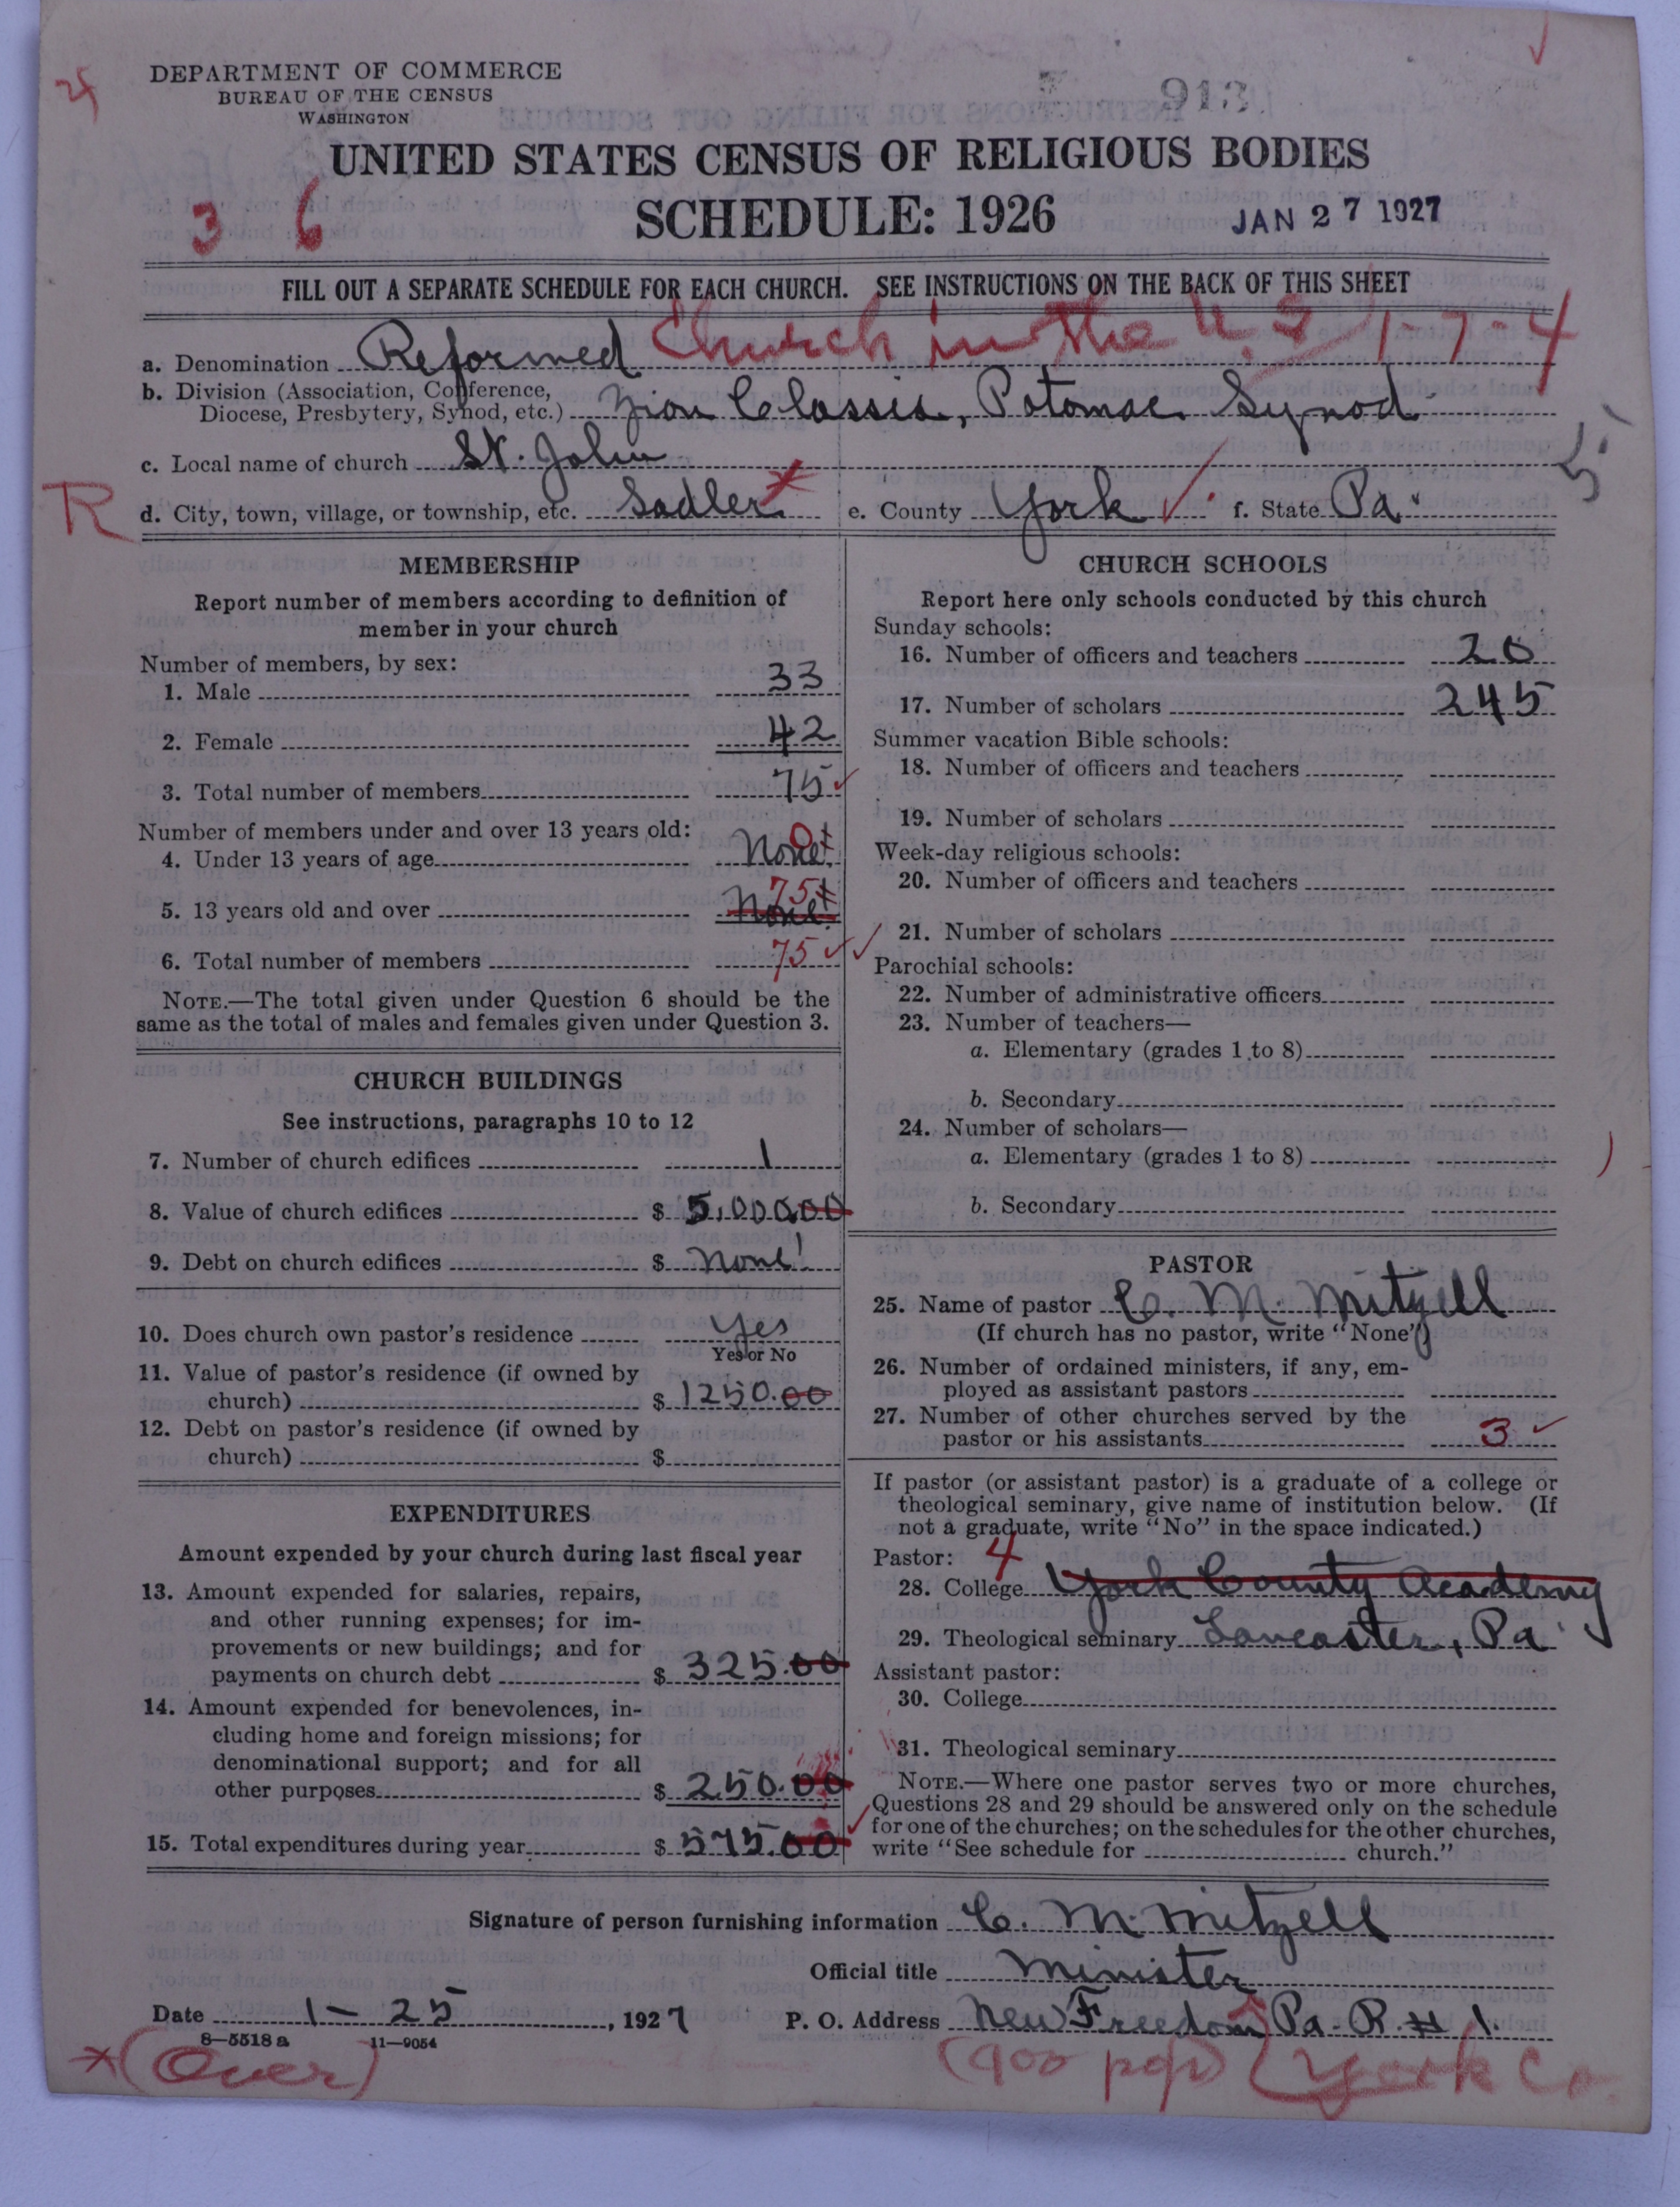 DEPARTMENT OF COMMERCE
BUREAU OF THE CENSUS
WASHINGTON
913
UNITED STATES CENSUS OF RELIGIOUS BODIES
3 6
SCHEDULE: 1926
JAN 27 1927
FILL OUT A SEPARATE SCHEDULE FOR EACH CHURCH. SEE INSTRUCTIONS ON THE BACK OF THIS SHEET
a. Denomination Reformed Church in the U.S. 1-7-4
b. Division (Association, Conference,
Diocese, Presbytery, Synod, etc.) Zion Classis, Potomac Synod
c. Local name of church St. John
5
R
d. City, town, village, or township, etc. Sadler* e. County York ✓ f. State Pa.
MEMBERSHIP
Report number of members according to definition of
member in your church
Number of members, by sex:
1. Male 33
2. Female 42
3. Total number of members 75 ✓
Number of members under and over 13 years old:
0
4. Under 13 years of age None
75
5. 13 years old and over None
6. Total number of members 75 ✓✓
NOTE.—The total given under Question 6 should be the
same as the total of males and females given under Question 3.
CHURCH BUILDINGS
See instructions, paragraphs 10 to 12
7. Number of church edifices 1
8. Value of church edifices $ 5,000.00
9. Debt on church edifices $ None!
10. Does church own pastor's residence Yes
Yes or No
11. Value of pastor's residence (if owned by
church) $ 1250.00
12. Debt on pastor's residence (if owned by
church) $
EXPENDITURES
Amount expended by your church during last fiscal year
13. Amount expended for salaries, repairs,
and other running expenses; for im-
provements or new buildings; and for
payments on church debt $ 325.00
14. Amount expended for benevolences, in-
cluding home and foreign missions; for
denominational support; and for all
other purposes $ 250.00
15. Total expenditures during year $ 575.00 ✓
CHURCH SCHOOLS
Report here only schools conducted by this church
Sunday schools:
16. Number of officers and teachers 20
17. Number of scholars 245
Summer vacation Bible schools:
18. Number of officers and teachers
19. Number of scholars
Week-day religious schools:
20. Number of officers and teachers
21. Number of scholars
Parochial schools:
22. Number of administrative officers
23. Number of teachers—
a. Elementary (grades 1 to 8)
b. Secondary
24. Number of scholars—
a. Elementary (grades 1 to 8)
b. Secondary
PASTOR
25. Name of pastor C. M. Mitzell
(If church has no pastor, write "None")
26. Number of ordained ministers, if any, em-
ployed as assistant pastors
27. Number of other churches served by the
pastor or his assistants 3 ✓
If pastor (or assistant pastor) is a graduate of a college or
theological seminary, give name of institution below. (If
not a graduate, write "No" in the space indicated.)
Pastor: 4
28. College York County Academy
29. Theological seminary Lancaster, Pa
Assistant pastor:
30. College
31. Theological seminary
NOTE.—Where one pastor serves two or more churches,
Questions 28 and 29 should be answered only on the schedule
for one of the churches; on the schedules for the other churches,
write "See schedule for church."
Signature of person furnishing information C. M. Mitzell
Official title Minister
Date 1-25, 1927 P. O. Address New Freedom Pa. R. # 1.
8—5518 a 11—9054
*(Over) (900 pop) (York Co.